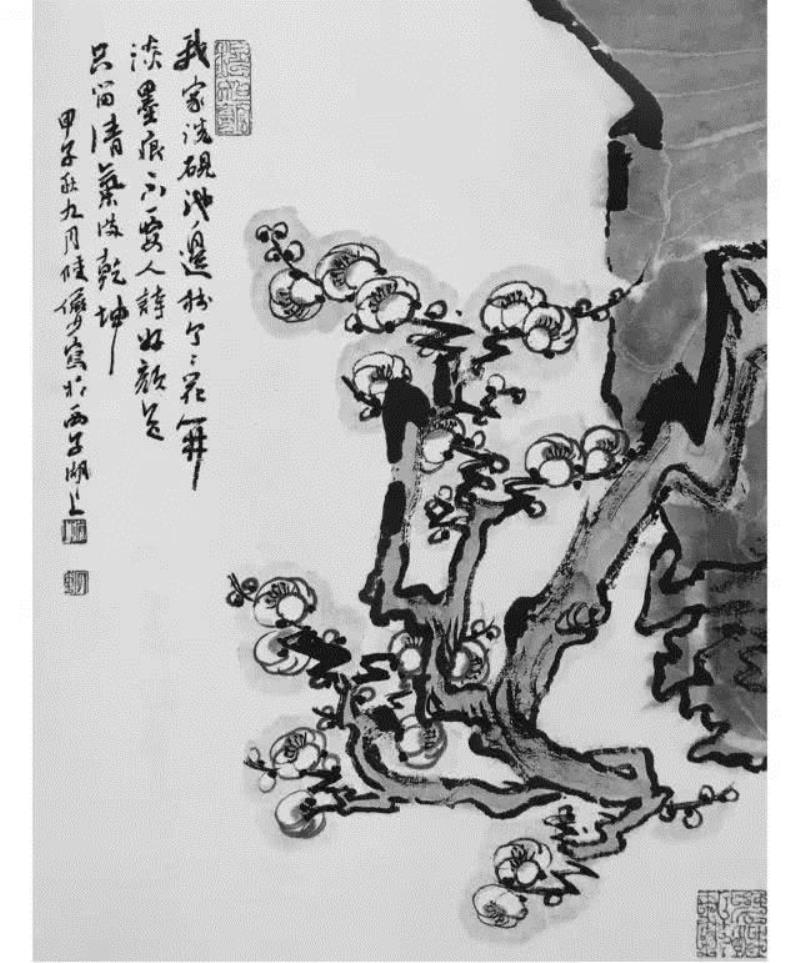 我家洗硯池邊樹个々花開
淡墨痕不要人誇好顏色
只留清氣滿乾坤
甲子秋九月陸儼少寫於西子湖上